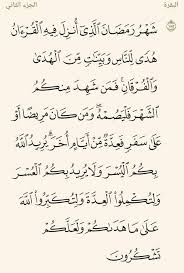 البقرة
الجزء الثاني
شَهۡرُ رَمَضَانَ ٱلَّذِيٓ أُنزِلَ فِيهِ ٱلۡقُرۡءَانُ
هُدٗى لِّلنَّاسِ وَبَيِّنَٰتٖ مِّنَ ٱلۡهُدَىٰ
وَٱلۡفُرۡقَانِۚ فَمَن شَهِدَ مِنكُمُ
ٱلشَّهۡرَ فَلۡيَصُمۡهُۖ وَمَن كَانَ مَرِيضًا أَوۡ
عَلَىٰ سَفَرٖ فَعِدَّةٞ مِّنۡ أَيَّامٍ أُخَرَۗ يُرِيدُ ٱللَّهُ
بِكُمُ ٱلۡيُسۡرَ وَلَا يُرِيدُ بِكُمُ ٱلۡعُسۡرَ
وَلِتُكۡمِلُواْ ٱلۡعِدَّةَ وَلِتُكَبِّرُواْ ٱللَّهَ
عَلَىٰ مَا هَدَىٰكُمۡ وَلَعَلَّكُمۡ
تَشۡكُرُونَ